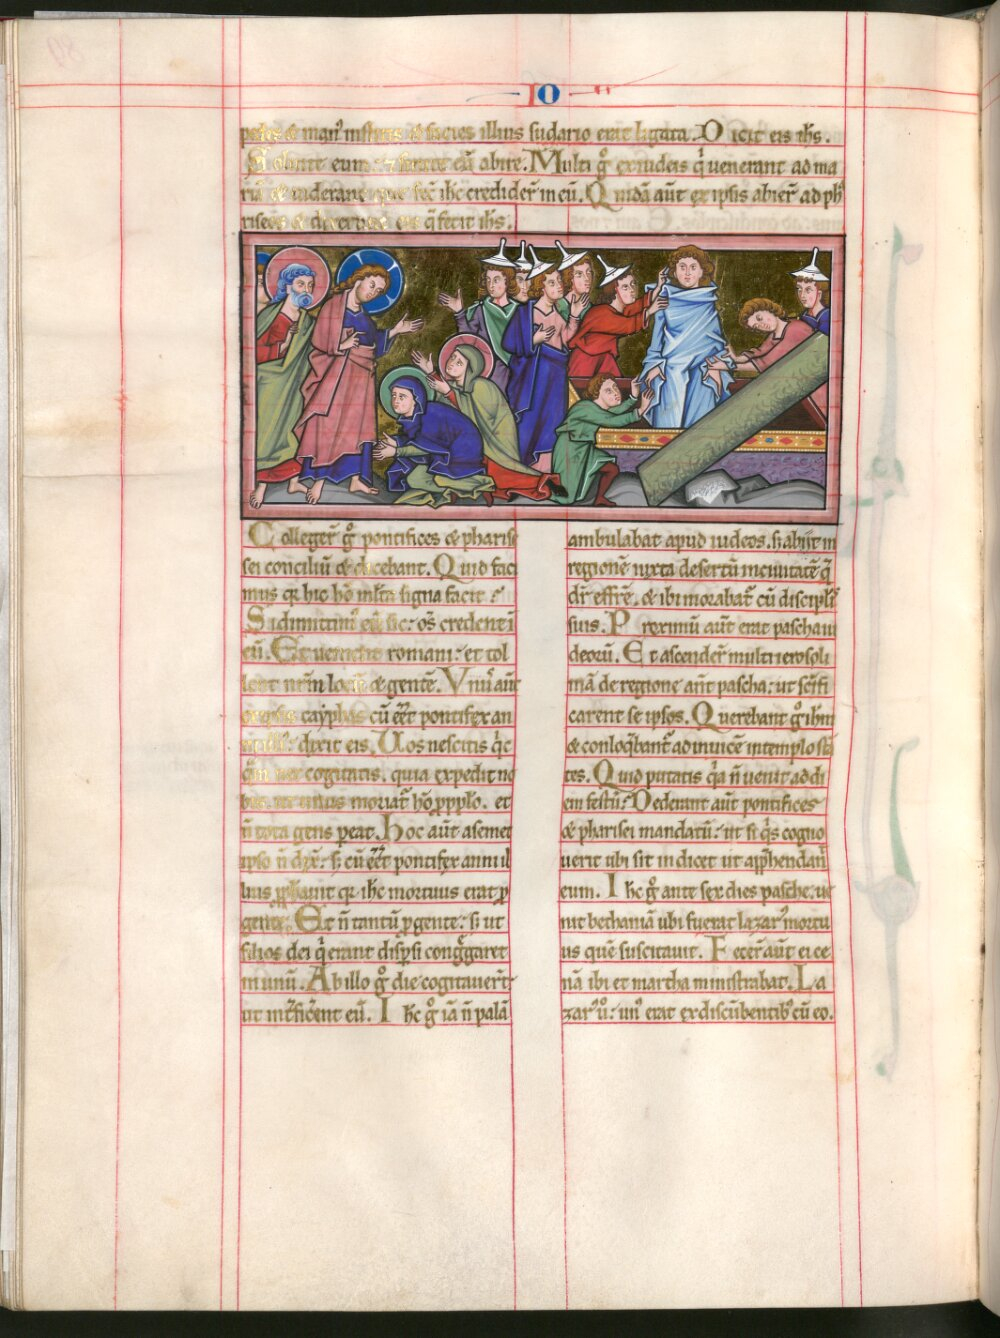 IO
pedes & man' institis & facies illius sudario erat ligata. Dicit eis ihs.
Soluite eum: & sinite eū abire. Multi g̊ ex iudeis q̇ uenerant ad ma
riā & uiderant que fec̄ ihc crediderͭ in eū. Quidā aūt ex ipsis abierͭ ad ph
riseos & dixerunt eis q̄ fecit ihs.
Collegerͭ g̊ pontifices & pharise
sei conciliū & dicebant. Quid faci
mus qr hic hō mlta signa facit?
Si dimittim' eū sic: oms credent ī
eū. Et uenient romani: et tol
lent nrm locū & gentē. Vnus aūt
ex ipsis cayphas cū eēt pontifex an
dixit eis. Uos nescitis q̇c
cogitatis. quia expedit uo
bis. ut unus moriat' hō p pplo. et
n̄ tota gens peat. Hoc aūt a semet
ipso n̄ dix: s; cū eēt pontifex anni il
lius pphauit qr ihc moriturus erat p
gente. Et n̄ tantū p gente: s; ut
filios dei q̇ erant dispsi cong̊garet
in unū. Ab illo g̊ die cogitauerͭ
ut intficerent eū. Ihc g̊ iā n̄ palā
ambulabat apud iudeos. s; abijt in
regionē iuxta desertū in ciuitatē q̄
dr effrē. & ibi morabat' cū discipl'
suis. Proximū aūt erat pascha iu
deoru. Et ascenderͭ multi ierosoli
mā de regione ant pascha: ut sc̄ifi
carent se ipsos. Querebant g̊ ihm
& conloq̇bant' ad inuicē in templo stā
tes. Quid putatis q̇a n̄ uenit ad di
em festū? Dederant aūt pontifices
& pharisei mandatū: ut si q̇s cogno
uerit ubi sit indicet ut app̄hendant
eum. Ihc g̊ ante sex dies pasche: ue
nit bethaniā ubi fuerat lazar' mortu
us quē suscitauit. Fecerͭ aūt ei ce
nā ibi et martha ministrabat. La
zar' ů: un' erat ex discūbentib' cū eo.